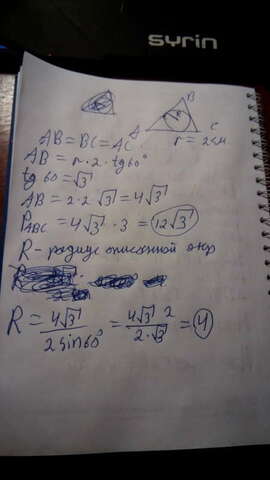 syrin
B
A
C
r = 2см
AB = BC = AC
AB = r · 2 · tg60°
tg 60 = √3
AB = 2 · 2 √3 = 4√3
P_ABC = 4√3 · 3 = 12√3
R - радиус описанной окр
R = 4√3 / 2 sin60° = 4√3 · 2 / 2 · √3 = 4